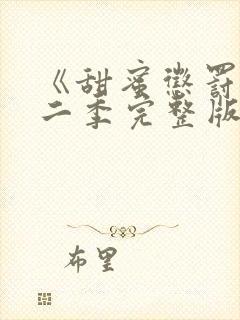 《甜蜜懲罰
二季完整版
布里